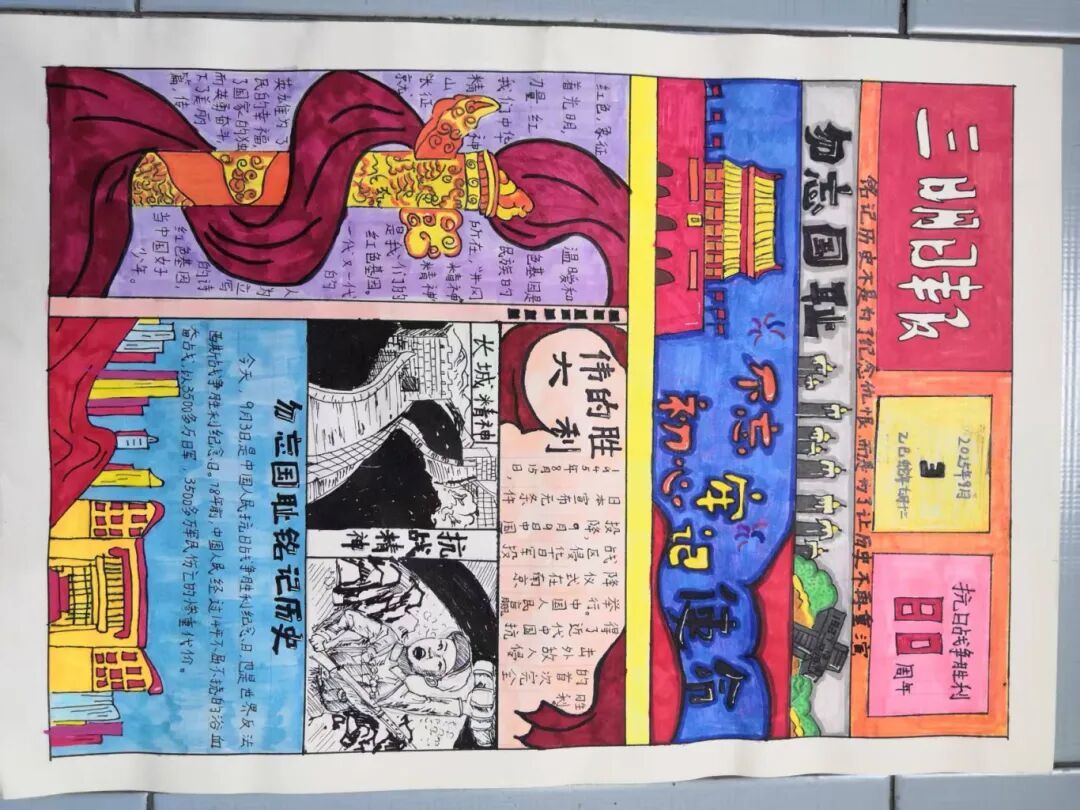 三明日报
2025年9月
3
抗日战争胜利
80
周年
铭记历史不是为了纪念仇恨,而是为了让历史不再重演
勿忘国耻
不忘初心
牢记使命
红色,象征 温暖和
着光明,
力量,红 色基因是
我们中华 民族的
精神 所在,"井冈
山精神"
就 是我们的
红色基因。
一代又一代的
英雄为了人
民的幸福 为
了国家的独立
而英勇奋斗, 写
下了美丽 的诗
篇,传 红色基因,
当中国好
少年。
伟大的胜利
1945年8月15日,
日本宣布无条件
投降,9月9日中国
战区侵华日军投
降仪式在南京
举行。中国人民赢
得了近代中国抗
击外敌入侵
的首次完全
胜利。
长城精神
抗战精神
勿忘国耻铭记历史
今天,9月3日是中国人民抗日战争胜利纪念日,也是世界反法
西斯战争胜利纪念日。78年前,中国人民经过14年不屈不挠的浴血
奋战,以3500多万日军,3500多万军民伤亡的惨重代价。